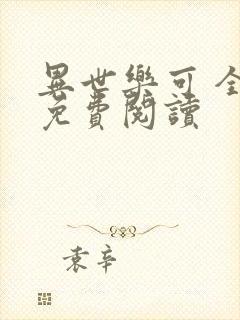 異世樂可全
免費閱讀
袁辛